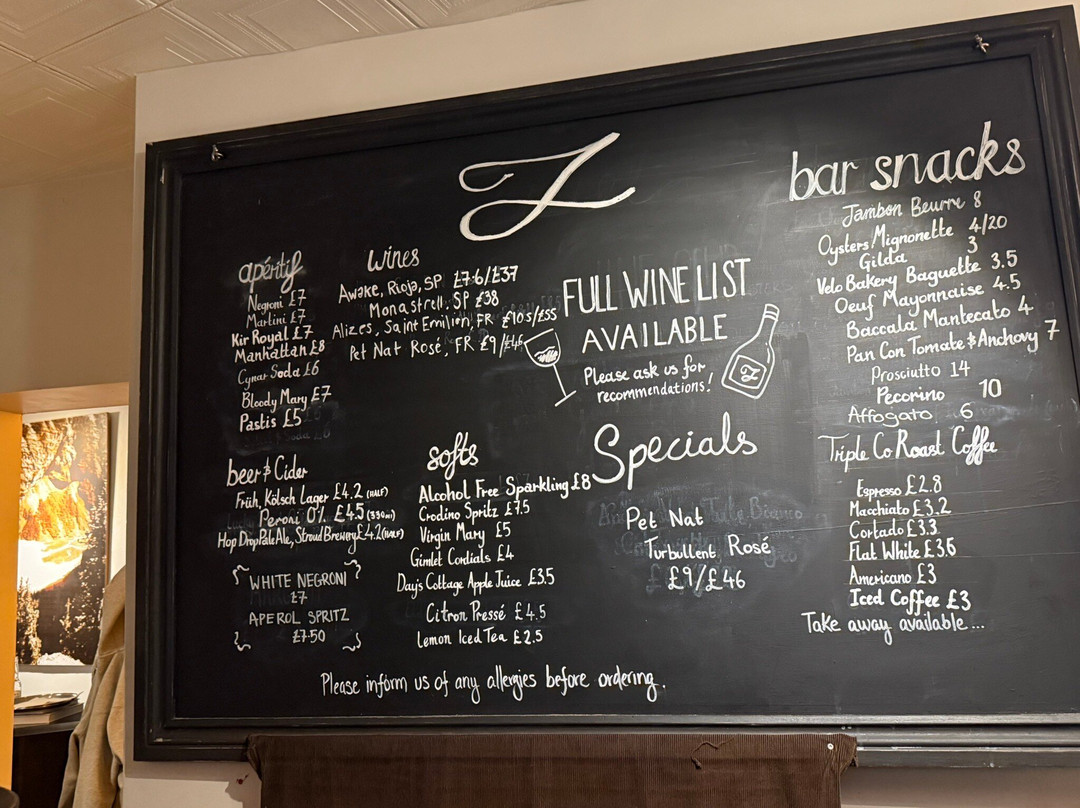 Z
apéritif
Negroni £7
Martini £7
Kir Royal £7
Manhattan £8
Cynar Soda £6
Bloody Mary £7
Pastis £5
wines
Awake, Rioja, SP £7.6/£37
Monastrell, SP £38
Alizes, Saint Emilion, FR £10.5/£55
Pet Nat Rosé, FR £9/£46
FULL WINE LIST
AVAILABLE
Please ask us for
recommendations!
Z
bar snacks
Jambon Beurre 8
Oysters Mignonette 4/20
Gilda 3
Velo Bakery Baguette 3.5
Oeuf Mayonnaise 4.5
Baccala Mantecato 4
Pan Con Tomate & Anchovy 7
Prosciutto 14
Pecorino 10
Affogato 6
beer & Cider
Früh, Kölsch Lager £4.2 (HALF)
Peroni 0% £4.5 (330ml)
Hop Drop Pale Ale, Stroud Brewery £4.2 (HALF)
WHITE NEGRONI
£7
APEROL SPRITZ
£7.50
softs
Alcohol Free Sparkling £8
Crodino Spritz £7.5
Virgin Mary £5
Gimlet Cordials £4
Day's Cottage Apple Juice £3.5
Citron Pressé £4.5
Lemon Iced Tea £2.5
Specials
Pet Nat
Turbullent Rosé
£9/£46
Triple Co Roast Coffee
Espresso £2.8
Macchiato £3.2
Cortado £3.3
Flat White £3.6
Americano £3
Iced Coffee £3
Take away available...
Please inform us of any allergies before ordering.